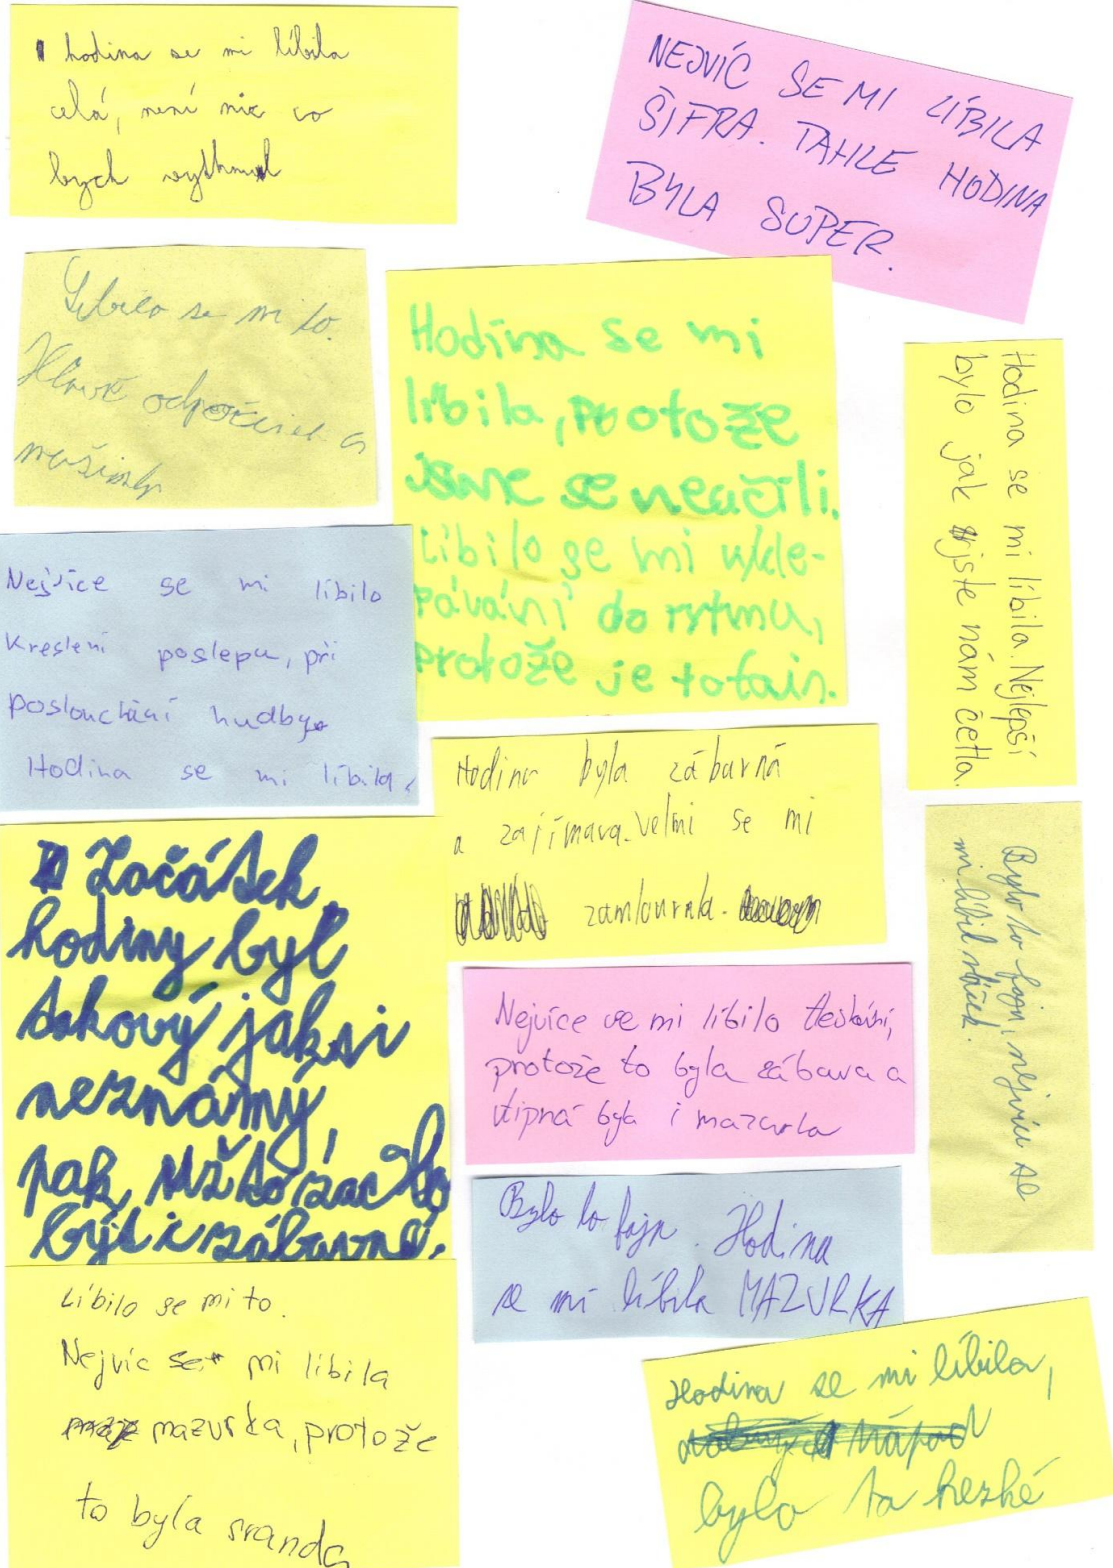 hodina se mi líbila
celá, není nic co
bych vytknul
NEJVÍC SE MI LÍBILA
ŠIFRA. TAHLE HODINA
BYLA SUPER.
Líbilo se mi to.
Hlavně odpočinek a
Hodina se mi
líbila, protože
jsme se neučili.
Líbilo se mi vykle-
pávání do rytmu,
protože je to fain.
Hodina se mi líbila. Nejlepší
bylo jak jste nám četla.
Nejvíce se mi líbilo
Kreslení poslepu, při
poslouchání hudby.
Hodina se mi líbila.
Hodina byla zábavná
a zajímava. Velmi se mi
zamlouvala.
Začátek
hodiny byl
takový jaksi
neznámý,
pak už to začalo
být i zábavné.
Bylo to fajn, nejvíce se
mi líbil
Nejvíce se mi líbilo tleskání,
protože to byla zábava a
vtipná byla i mazurka
Bylo to fajn. Hodina
se mi líbila MAZURKA
Líbilo se mi to.
Nejvíc se mi líbila
mazurka, protože
to byla sranda
Hodina se mi líbila,
nápad
bylo to hezké